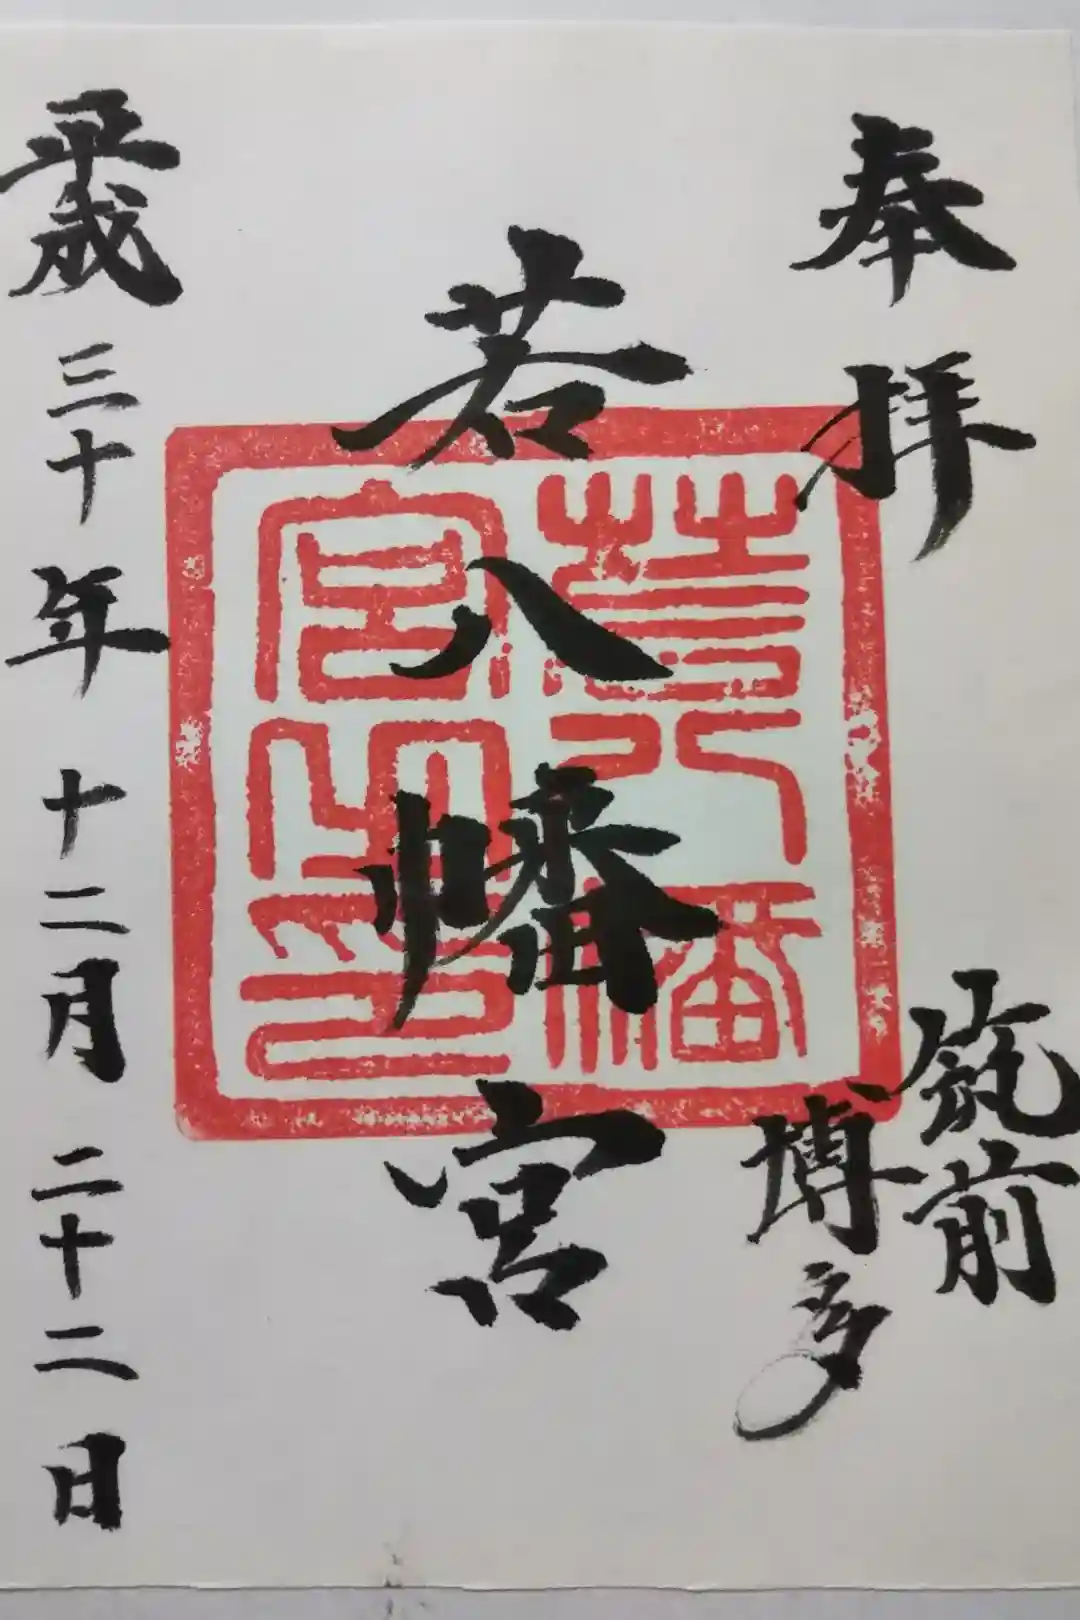 奉拝
筑前
博多
若八幡宮
若八幡
宮之印
平成三十年十二月二十二日